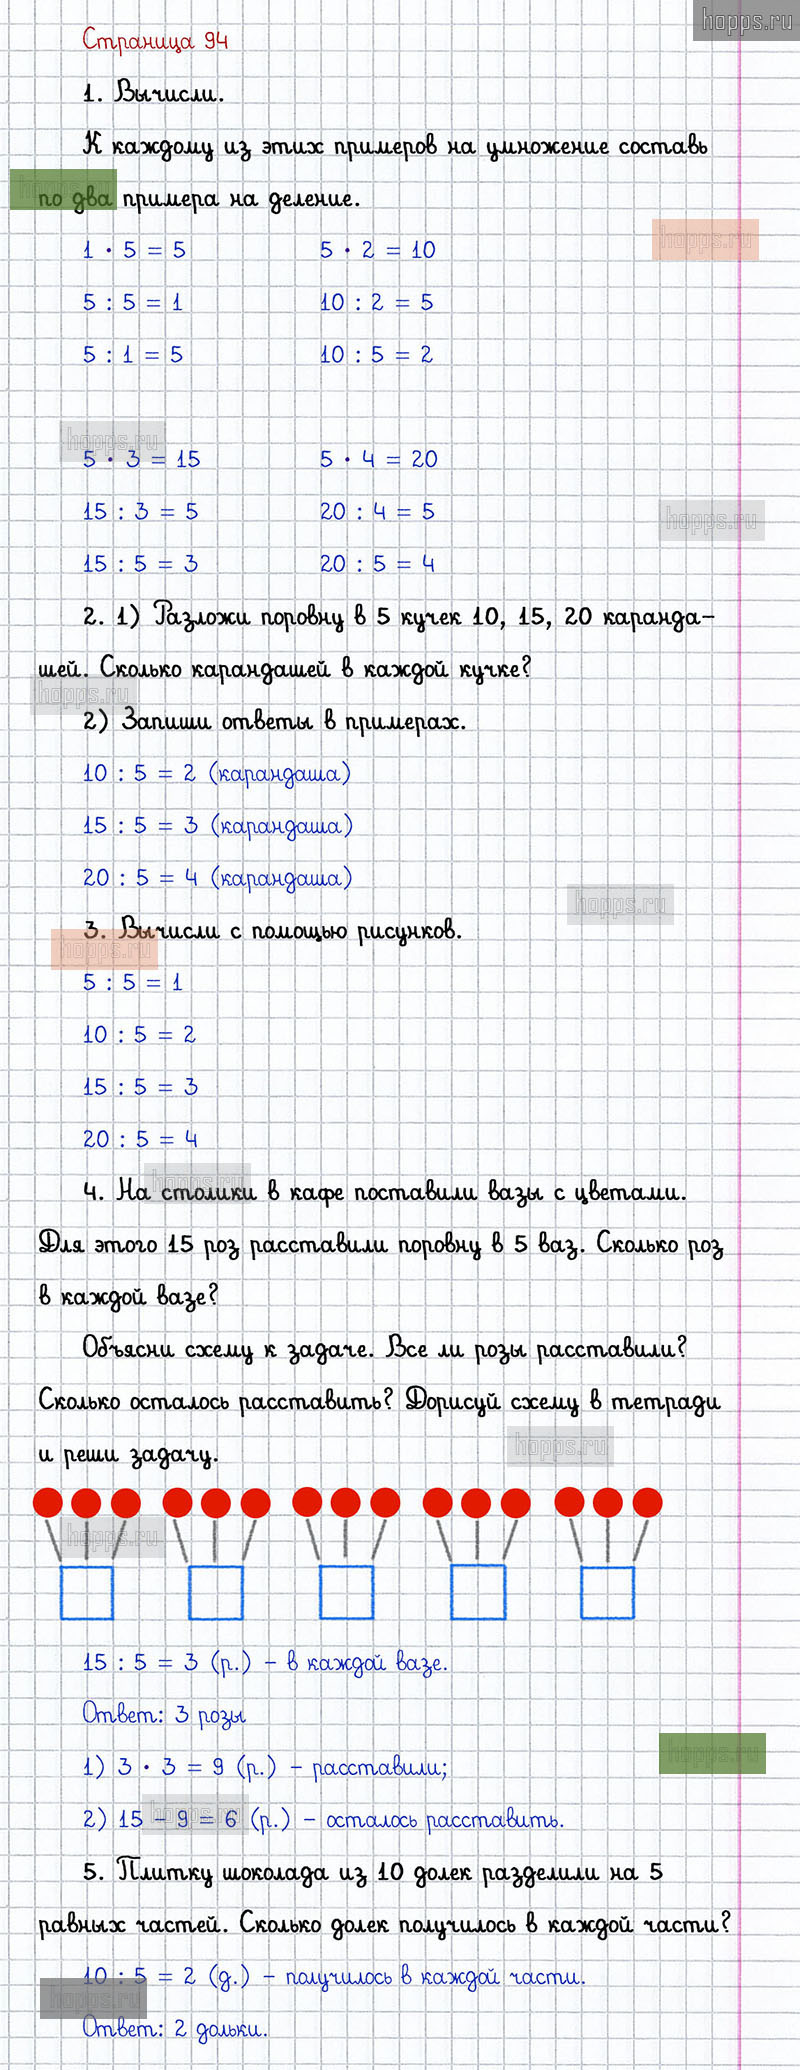 hopps.ru
Страница 94
1. Вычисли.
К каждому из этих примеров на умножение составь
по два примера на деление.
hopps.ru
hopps.ru
1 · 5 = 5 5 · 2 = 10
5 : 5 = 1 10 : 2 = 5
5 : 1 = 5 10 : 5 = 2
hopps.ru
5 · 3 = 15 5 · 4 = 20
15 : 3 = 5 20 : 4 = 5
hopps.ru
15 : 5 = 3 20 : 5 = 4
2. 1) Разложи поровну в 5 кучек 10, 15, 20 каранда-
шей. Сколько карандашей в каждой кучке?
hopps.ru
2) Запиши ответы в примерах.
10 : 5 = 2 (карандаша)
15 : 5 = 3 (карандаша)
20 : 5 = 4 (карандаша)
hopps.ru
3. Вычисли с помощью рисунков.
hopps.ru
5 : 5 = 1
10 : 5 = 2
15 : 5 = 3
20 : 5 = 4
hopps.ru
4. На столики в кафе поставили вазы с цветами.
Для этого 15 роз расставили поровну в 5 ваз. Сколько роз
в каждой вазе?
Объясни схему к задаче. Все ли розы расставили?
Сколько осталось расставить? Дорисуй схему в тетради
и реши задачу.
hopps.ru
hopps.ru
15 : 5 = 3 (р.) – в каждой вазе.
Ответ: 3 розы
hopps.ru
1) 3 · 3 = 9 (р.) – расставили;
2) 15 – 9 = 6 (р.) – осталось расставить.
hopps.ru
5. Плитку шоколада из 10 долек разделили на 5
равных частей. Сколько долек получилось в каждой части?
10 : 5 = 2 (д.) – получилось в каждой части.
hopps.ru
Ответ: 2 дольки.